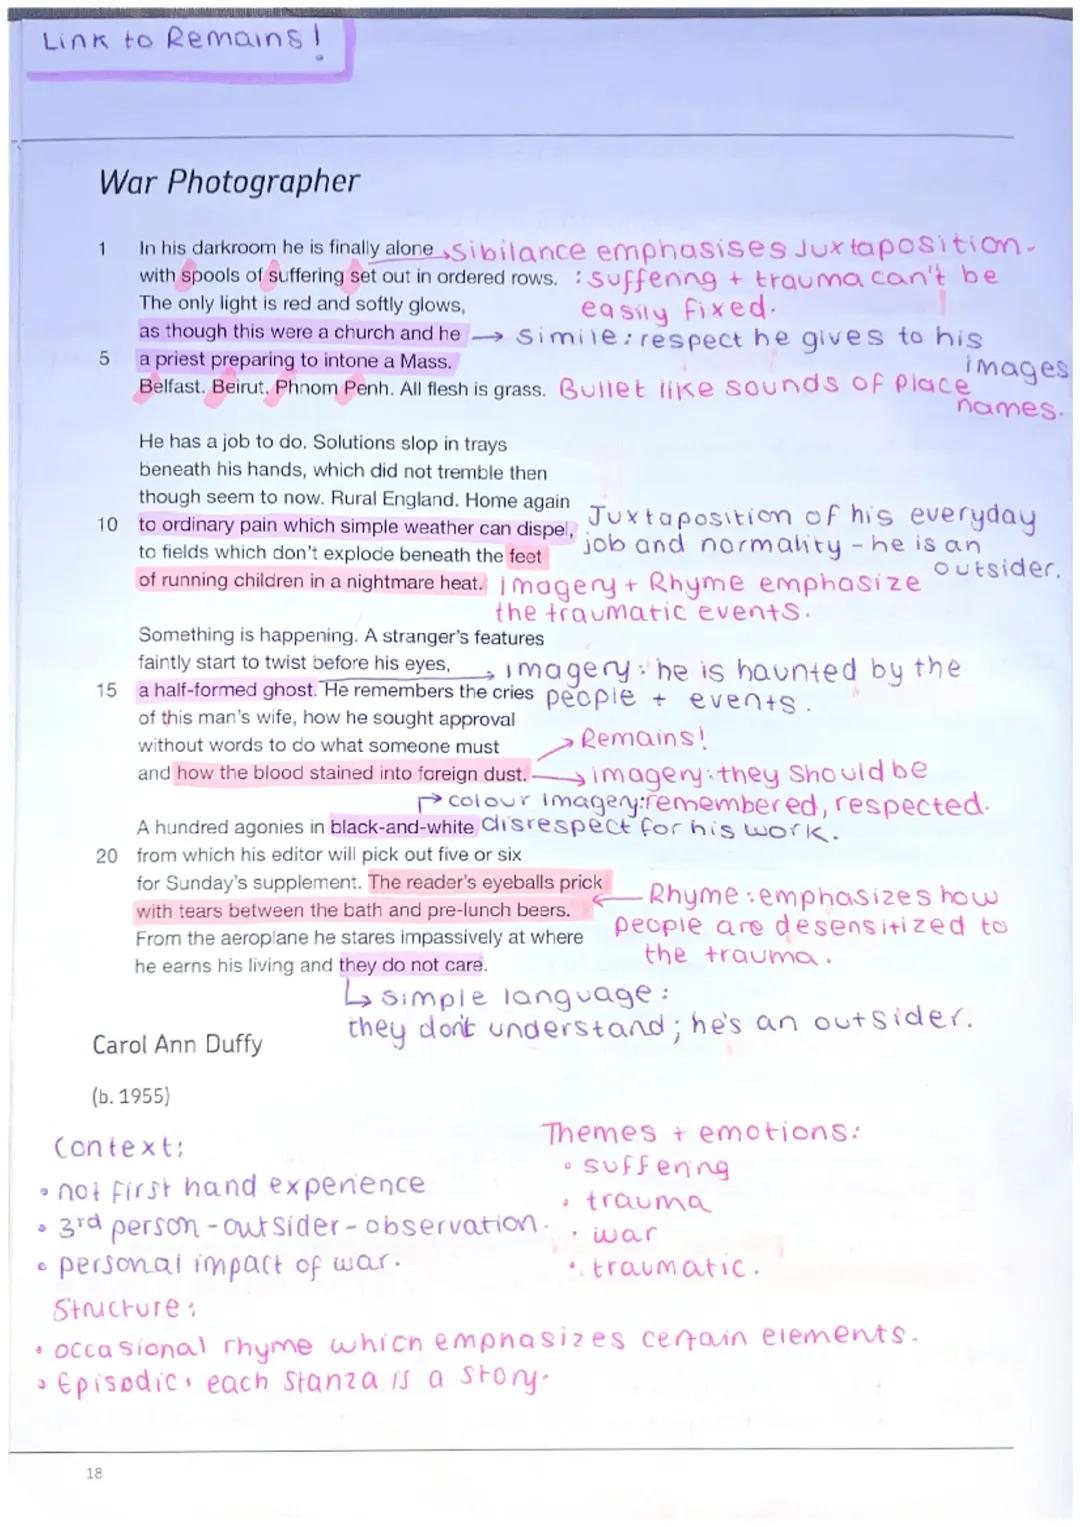 Link to Remains!
War Photographer
1 In his darkroom he is finally alone Sibilance emphasises Juxtaposition.
with spools of suffering set out in ordered rows. : suffering + trauma can't be
The only light is red and softly glows, easily fixed.
as though this were a church and he → simile: respect he gives to his
5 a priest preparing to intone a Mass. images
Belfast. Beirut. Phnom Penh. All flesh is grass. Bullet like sounds of place
names.
He has a job to do. Solutions slop in trays
beneath his hands, which did not tremble then
though seem to now. Rural England. Home again
10 to ordinary pain which simple weather can dispel, Juxtaposition of his everyday
to fields which don't explode beneath the feet job and normality - he is an
outsider.
of running children in a nightmare heat. imagery + Rhyme emphasize
the traumatic events.
Something is happening. A stranger's features
faintly start to twist before his eyes, → imagery: he is haunted by the
15 a half-formed ghost. He remembers the cries people + events.
of this man's wife, how he sought approval
without words to do what someone must → Remains!
and how the blood stained into foreign dust. → imagery: they should be
remembered, respected.
→ colour imagery:
A hundred agonies in black-and-white disrespect for his work.
20 from which his editor will pick out five or six
for Sunday's supplement. The reader's eyeballs prick ← Rhyme: emphasizes how
with tears between the bath and pre-lunch beers. people are desensitized to
From the aeroplane he stares impassively at where the trauma.
he earns his living and they do not care.
↳ simple language:
they don't understand; he's an outsider.
Carol Ann Duffy
(b. 1955)
Context:
• not first hand experience
• 3rd person - outsider - observation.
• personal impact of war.
Themes + emotions:
• suffering
• trauma
• war
• traumatic.
Structure:
• occasional rhyme which emphasizes certain elements.
• Episodic, each stanza is a story.
18